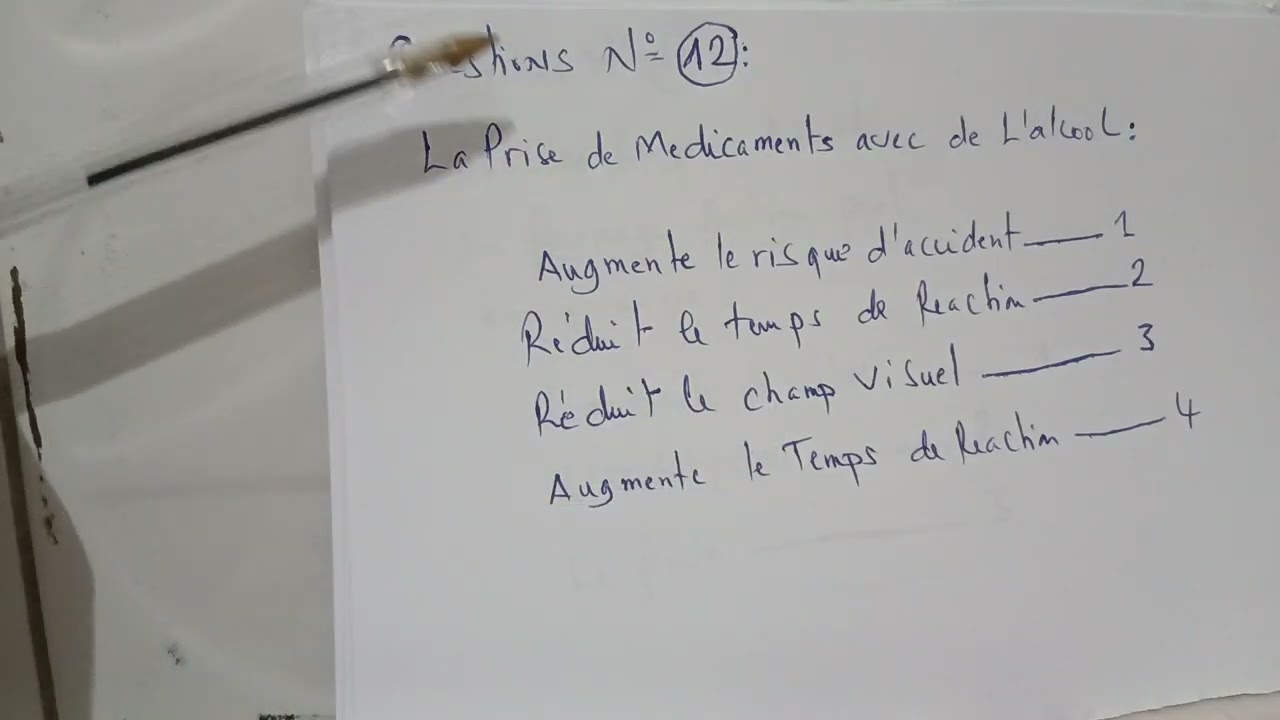 Questions N° 12:
La Prise de Medicaments avec de L'alcool:
Augmente le risque d'accident — 1
Réduit le temps de Reaction — 2
Réduit le champ visuel — 3
Augmente le Temps de Reaction — 4